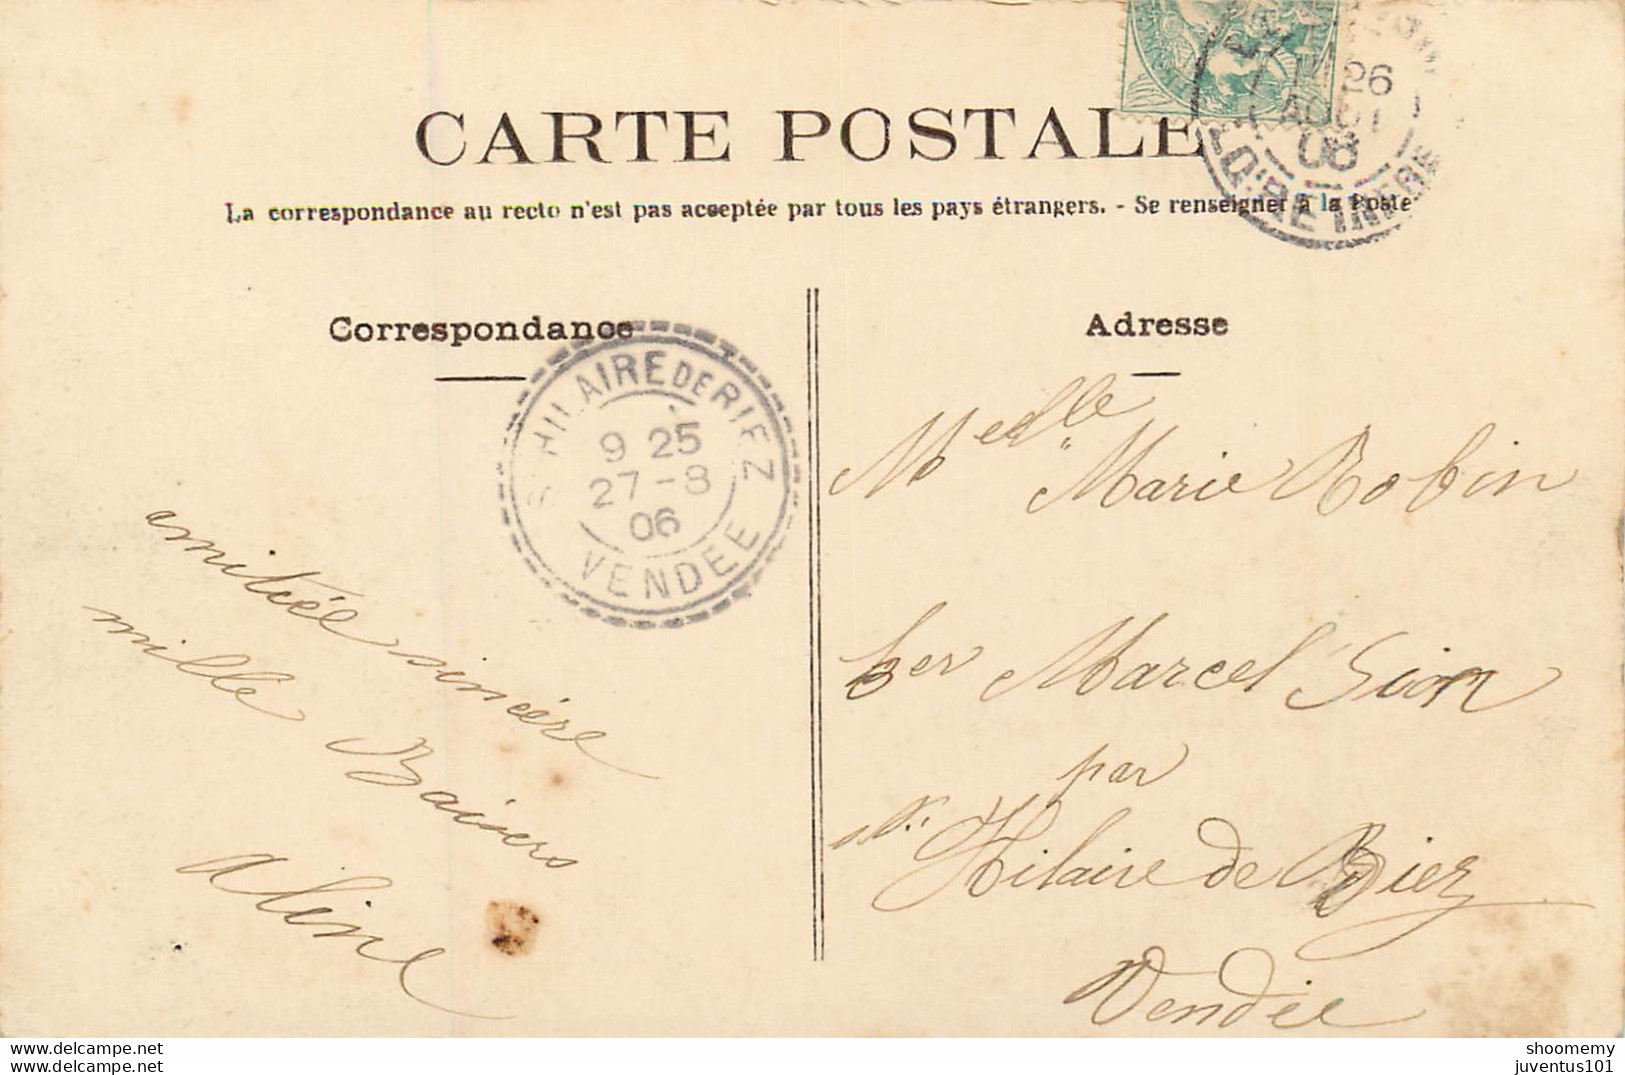 CARTE POSTALE
26
AOUT
06
LOIRE INFRE
La correspondance au recto n'est pas acceptée par tous les pays étrangers. - Se renseigner à la Poste
Correspondance
ST HILAIRE DE RIEZ
9 25
27-8
06
VENDEE
amitiée sincére
mille Baisers
Aline
Adresse
Melle Marie Robin
Marcel Sion
par
St Hilaire de Riez
Vendée
www.delcampe.net
shoomemy
juventus101